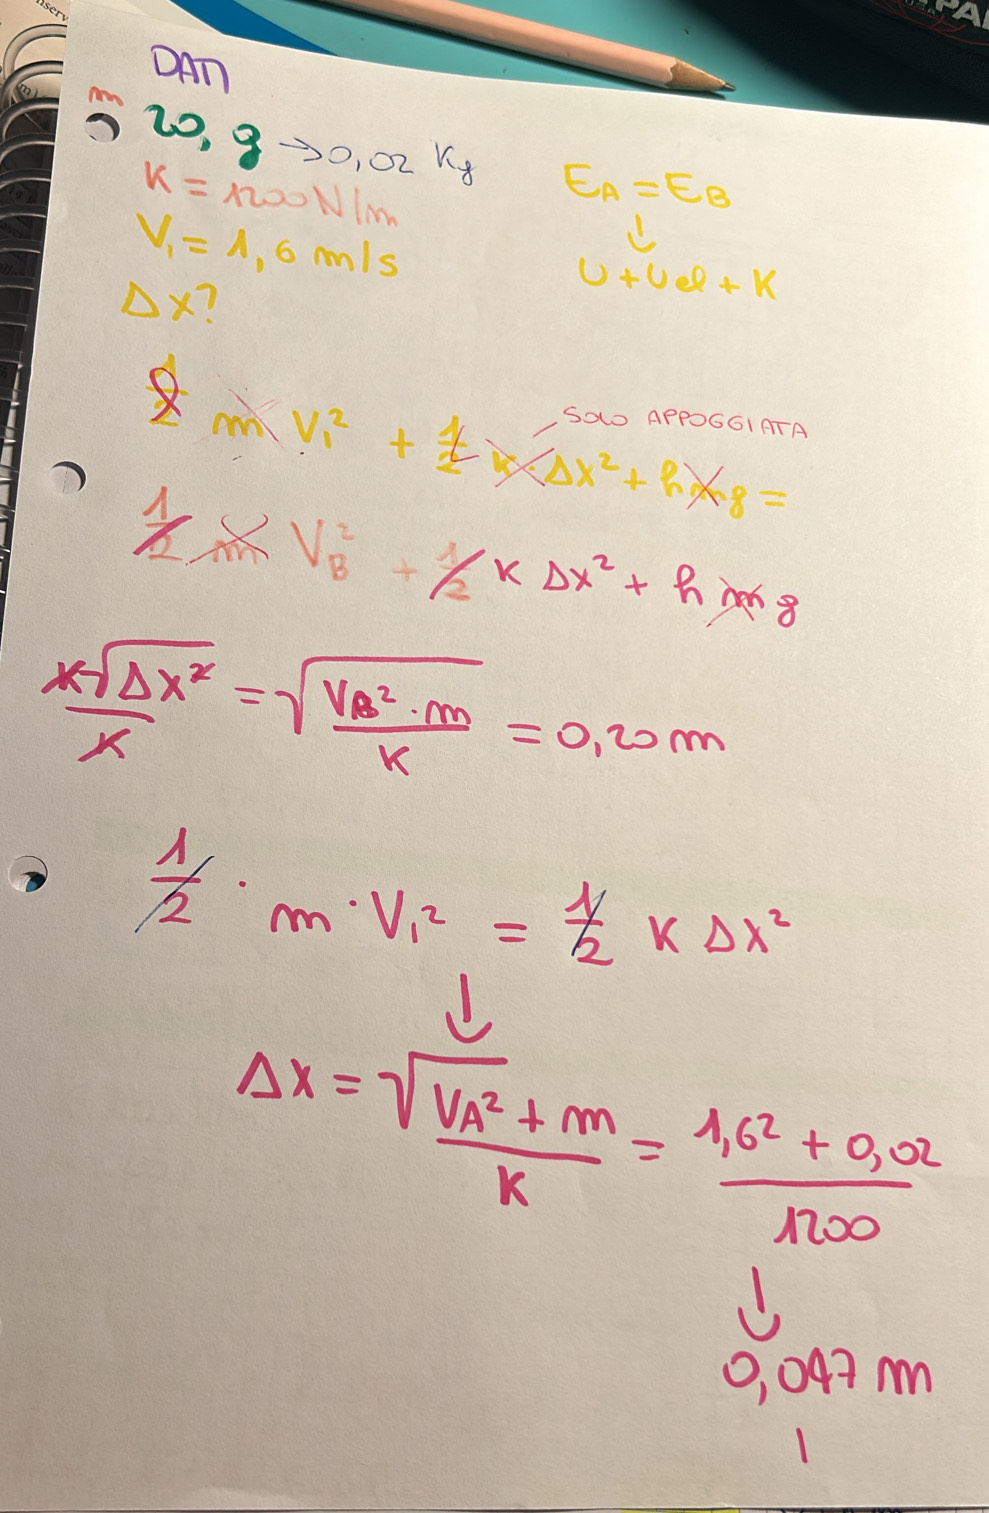 DATI
m 20, g → 0,02 Kg
K = 1200 N/m
V₁ = 1,6 m/s
Δx?
EA = EB
↓
U + Uel + K
1/2 m V₁² + 1/2 K · Δx² + h m g =
SOLO APPOGGIATA
1/2 m VB² + 1/2 K Δx² + h m g
K√Δx² / K = √(VB² · m / K) = 0,20 m
1/2 · m · V₁² = 1/2 K Δx²
↓
Δx = √(VA² + m / K) = 1,6² + 0,02 / 1200
↓
0,047 m